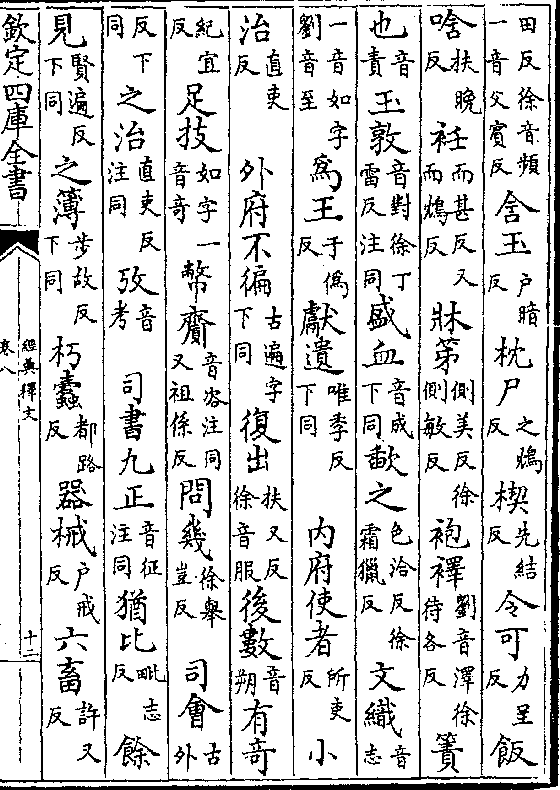 田反徐音頻一音父賓反含玉戶暗反枕尸之鴆反楔先結反令可力呈反飯
啥扶晚反衽而甚反又而鴆反牀笫側美反徐側敏反袍襗劉音澤徐待各反簀
也音責玉敦音對徐丁雷反注同盛血音成下同歃之色洽反徐霜獵反文織音志
一音如字劉音至為王于偽反獻遺唯季反下同 內府使者所吏反 小
治直吏反 外府不徧古遍字下同復出扶又反徐音服後數音朔有奇
紀宜反足技如字音奇一幣齎音咨注同又祖係反問幾徐舉豈反 司會古外
反下同之治直吏反注同攷音考 司書九正音征注同猶比毗志反餘
見賢遍反下同之簿步故反下同朽蠹都路反器械戶戒反六畜許又反
欽定四庫全書
經典釋文
卷八
十二